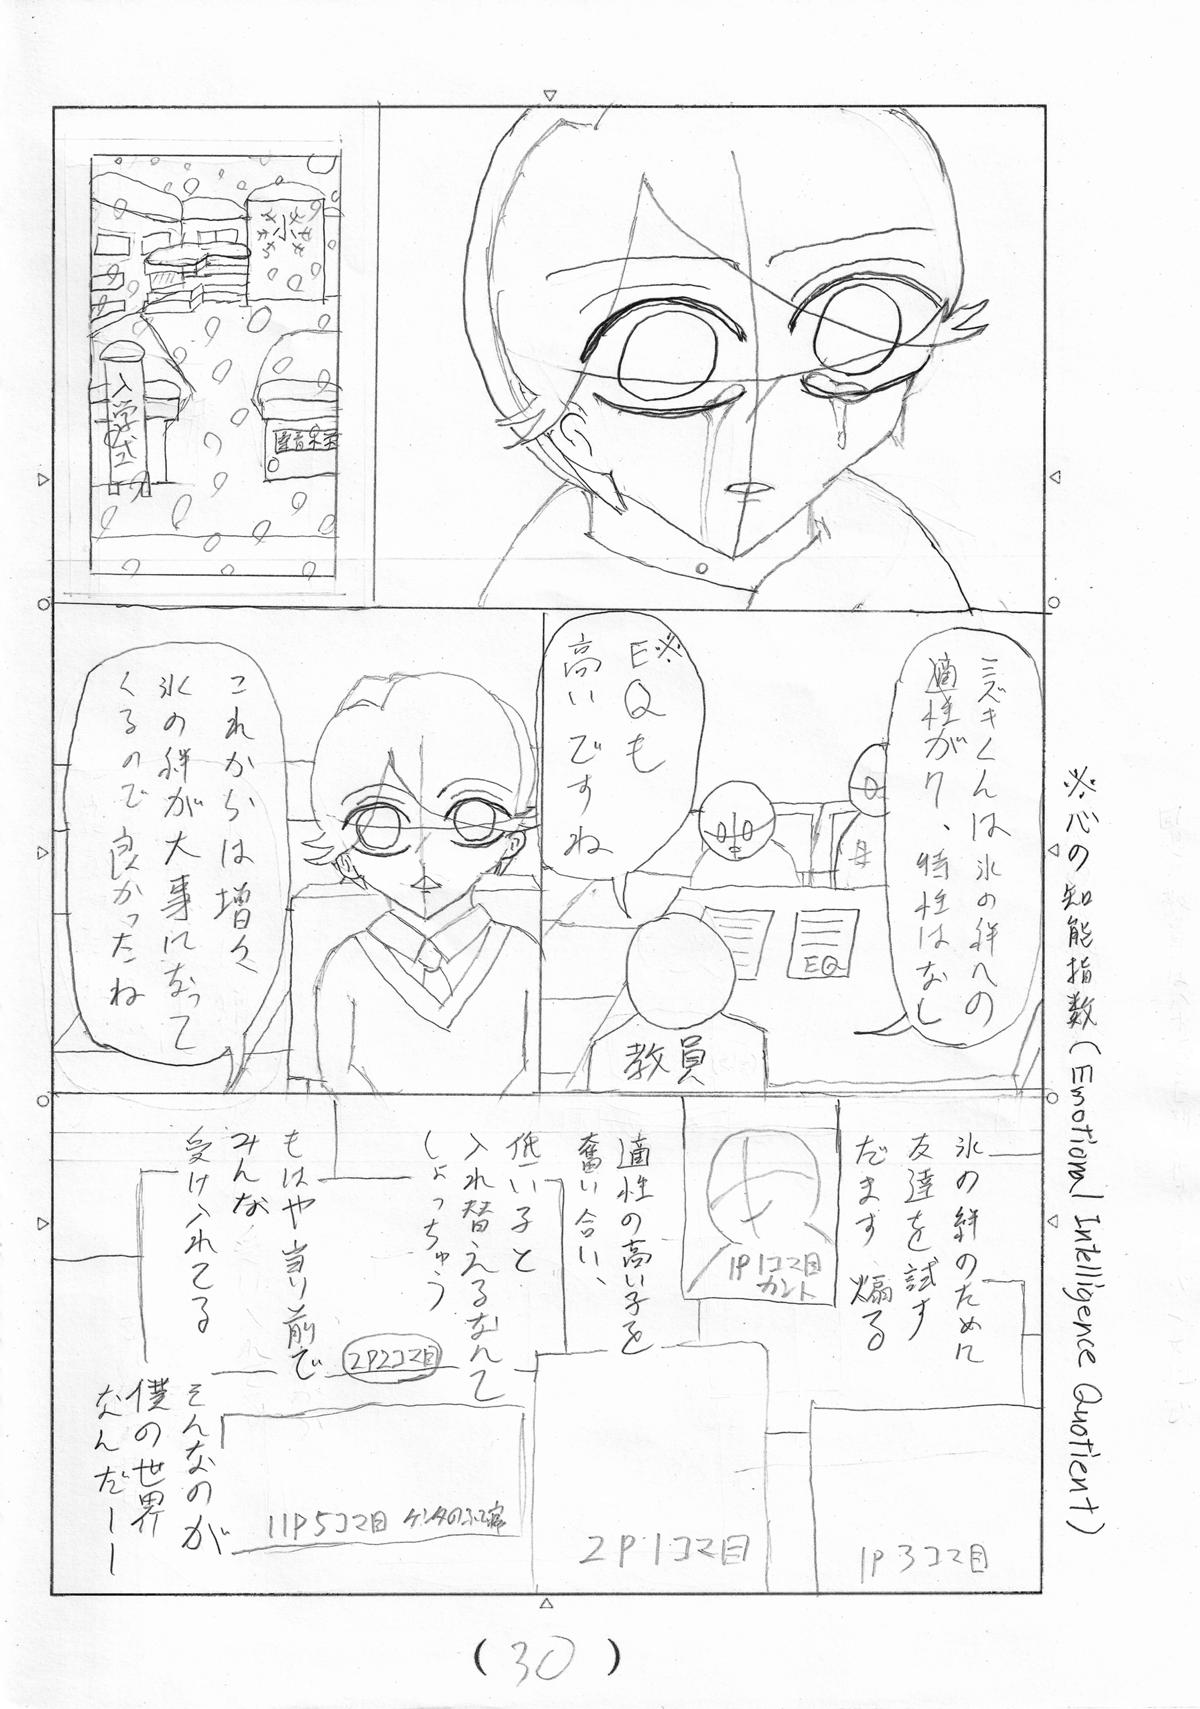 入学式
※心の知能指数(Emotional Intelligence Quotient)
ミズキくんは氷の絆への
適性が7、特性はなし
E※Qも
高いですね
母
EQ
教員
これからは増々
氷の絆が大事になって
くるので良かったね
氷の絆のために
友達を試す
だます 煽る
1P1コマ目
カント
適性の高い子を
奮い合い、
低い子と
入れ替えるなんて
しょっちゅう
もはや当り前で
みんな
受け入れてる
2P2コマ目
そんなのが
僕の世界
なんだーー
1P3コマ目
2P1コマ目
11P5コマ目
(30)